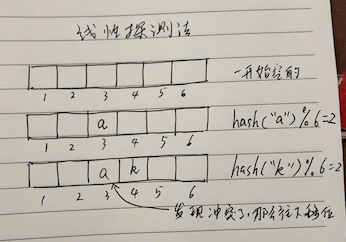 线性探测法
一开始空的
1 2 3 4 5 6
a hash("a")%6=2
1 2 3 4 5 6
a k hash("k")%6=2
1 2 3 4 5 6
发现冲突了,那么往下移位